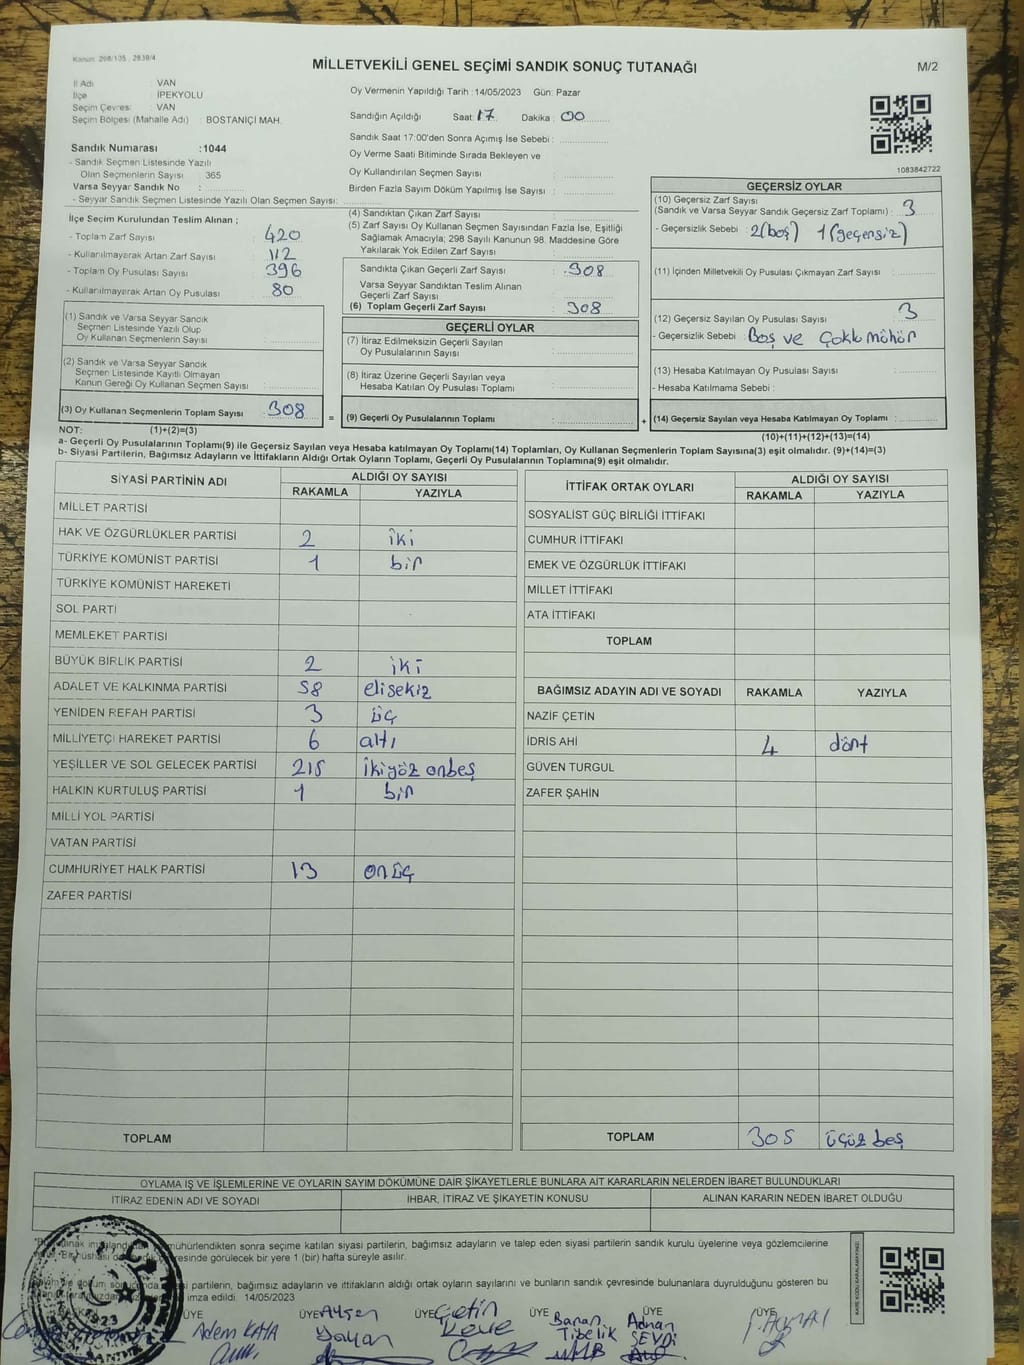 Kanun: 298/105 , 2839/4
MİLLETVEKİLİ GENEL SEÇİMİ SANDIK SONUÇ TUTANAĞI
M/2
İl Adı VAN
İlçe İPEKYOLU
Seçim Çevres: VAN
Seçim Bölgesi (Mahalle Adı) : BOSTANİÇİ MAH.
Sandık Numarası :1044
- Sandık Seçmen Listesinde Yazılı
Olan Seçmenlerin Sayısı 365
Varsa Seyyar Sandık No :
- Seyyar Sandık Seçmen Listesinde Yazılı Olan Seçmen Sayısı:
Oy Vermenin Yapıldığı Tarih :14/05/2023 Gün: Pazar
Sandığın Açıldığı Saat: 17 Dakika : 00
Sandık Saat 17:00'den Sonra Açımış İse Sebebi :
Oy Verme Saati Bitiminde Sırada Bekleyen ve
Oy Kullandırılan Seçmen Sayısı :
Birden Fazla Sayım Döküm Yapılmış İse Sayısı :
1083842722
İlçe Seçim Kurulundan Teslim Alınan ;
- Toplam Zarf Sayısı : 420
- Kullanılmayarak Artan Zarf Sayısı : 112
- Toplam Oy Pusulası Sayısı : 396
- Kullanılmayarak Artan Oy Pusulası : 80
(1) Sandık ve Varsa Seyyar Sandık
Seçmen Listesinde Yazılı Olup
Oy Kullanan Seçmenlerin Sayısı :
(2) Sandık ve Varsa Seyyar Sandık
Seçmen Listesinde Kayıtlı Olmayan
Kanun Gereği Oy Kullanan Seçmen Sayısı :
(3) Oy Kullanan Seçmenlerin Toplam Sayısı : 308
(4) Sandıktan Çıkan Zarf Sayısı :
(5) Zarf Sayısı Oy Kullanan Seçmen Sayısından Fazla İse, Eşitliği
Sağlamak Amacıyla; 298 Sayılı Kanunun 98. Maddesine Göre
Yakılarak Yok Edilen Zarf Sayısı :
Sandıkta Çıkan Geçerli Zarf Sayısı : 308
Varsa Seyyar Sandıktan Teslim Alınan
Geçerli Zarf Sayısı :
(6) Toplam Geçerli Zarf Sayısı : 308
GEÇERLİ OYLAR
(7) İtiraz Edilmeksizin Geçerli Sayılan
Oy Pusulalarının Sayısı :
(8) İtiraz Üzerine Geçerli Sayılan veya
Hesaba Katılan Oy Pusulası Toplamı :
= (9) Geçerli Oy Pusulalarının Toplamı :
GEÇERSİZ OYLAR
(10) Geçersiz Zarf Sayısı
(Sandık ve Varsa Seyyar Sandık Geçersiz Zarf Toplamı) : 3
- Geçersizlik Sebebi 2(boş) 1(geçersiz)
(11) İçinden Milletvekili Oy Pusulası Çıkmayan Zarf Sayısı :
(12) Geçersiz Sayılan Oy Pusulası Sayısı : 3
- Geçersizlik Sebebi : Boş ve Çoklu möhür
(13) Hesaba Katılmayan Oy Pusulası Sayısı :
- Hesaba Katılmama Sebebi :
+ (14) Geçersiz Sayılan veya Hesaba Katılmayan Oy Toplamı :
NOT: (1)+(2)=(3)
(10)+(11)+(12)+(13)=(14)
a- Geçerli Oy Pusulalarının Toplamı(9) ile Geçersiz Sayılan veya Hesaba katılmayan Oy Toplamı(14) Toplamları, Oy Kullanan Seçmenlerin Toplam Sayısına(3) eşit olmalıdır. (9)+(14)=(3)
b- Siyasi Partilerin, Bağımsız Adayların ve İttifakların Aldığı Ortak Oyların Toplamı, Geçerli Oy Pusulalarının Toplamına(9) eşit olmalıdır.
SİYASİ PARTİNİN ADI
ALDIĞI OY SAYISI
RAKAMLA YAZIYLA
MİLLET PARTİSİ
HAK VE ÖZGÜRLÜKLER PARTİSİ 2 iki
TÜRKİYE KOMÜNİST PARTİSİ 1 bir
TÜRKİYE KOMÜNİST HAREKETİ
SOL PARTİ
MEMLEKET PARTİSİ
BÜYÜK BİRLİK PARTİSİ 2 iki
ADALET VE KALKINMA PARTİSİ 58 elisekiz
YENİDEN REFAH PARTİSİ 3 üç
MİLLİYETÇİ HAREKET PARTİSİ 6 altı
YEŞİLLER VE SOL GELECEK PARTİSİ 215 ikiyöz onbeş
HALKIN KURTULUŞ PARTİSİ 1 bir
MİLLİ YOL PARTİSİ
VATAN PARTİSİ
CUMHURİYET HALK PARTİSİ 13 onüç
ZAFER PARTİSİ
TOPLAM
İTTİFAK ORTAK OYLARI
ALDIĞI OY SAYISI
RAKAMLA YAZIYLA
SOSYALİST GÜÇ BİRLİĞİ İTTİFAKI
CUMHUR İTTİFAKI
EMEK VE ÖZGÜRLÜK İTTİFAKI
MİLLET İTTİFAKI
ATA İTTİFAKI
TOPLAM
BAĞIMSIZ ADAYIN ADI VE SOYADI RAKAMLA YAZIYLA
NAZİF ÇETİN
İDRİS AHİ 4 dört
GÜVEN TURGUL
ZAFER ŞAHİN
TOPLAM 305 üçüz beş
OYLAMA İŞ VE İŞLEMLERİNE VE OYLARIN SAYIM DÖKÜMÜNE DAİR ŞİKAYETLERLE BUNLARA AİT KARARLARIN NELERDEN İBARET BULUNDUKLARI
İTİRAZ EDENİN ADI VE SOYADI İHBAR, İTİRAZ VE ŞİKAYETİN KONUSU ALINAN KARARIN NEDEN İBARET OLDUĞU
mühürlendikten sonra seçime katılan siyasi partilerin, bağımsız adayların ve talep eden siyasi partilerin sandık kurulu üyelerine veya gözlemcilerine
çevresinde görülecek bir yere 1 (bir) hafta süreyle asılır.
partilerin, bağımsız adayların ve ittifakların aldığı ortak oyların sayılarını ve bunların sandık çevresinde bulunanlara duyrulduğunu gösteren bu
imza edildi 14/05/2023
ÜYE ÜYE ÜYE ÜYE ÜYE ÜYE
Adem KAYA
Ayşen
Çetin
Baran
Tibelik
Adnan
SEVDİ